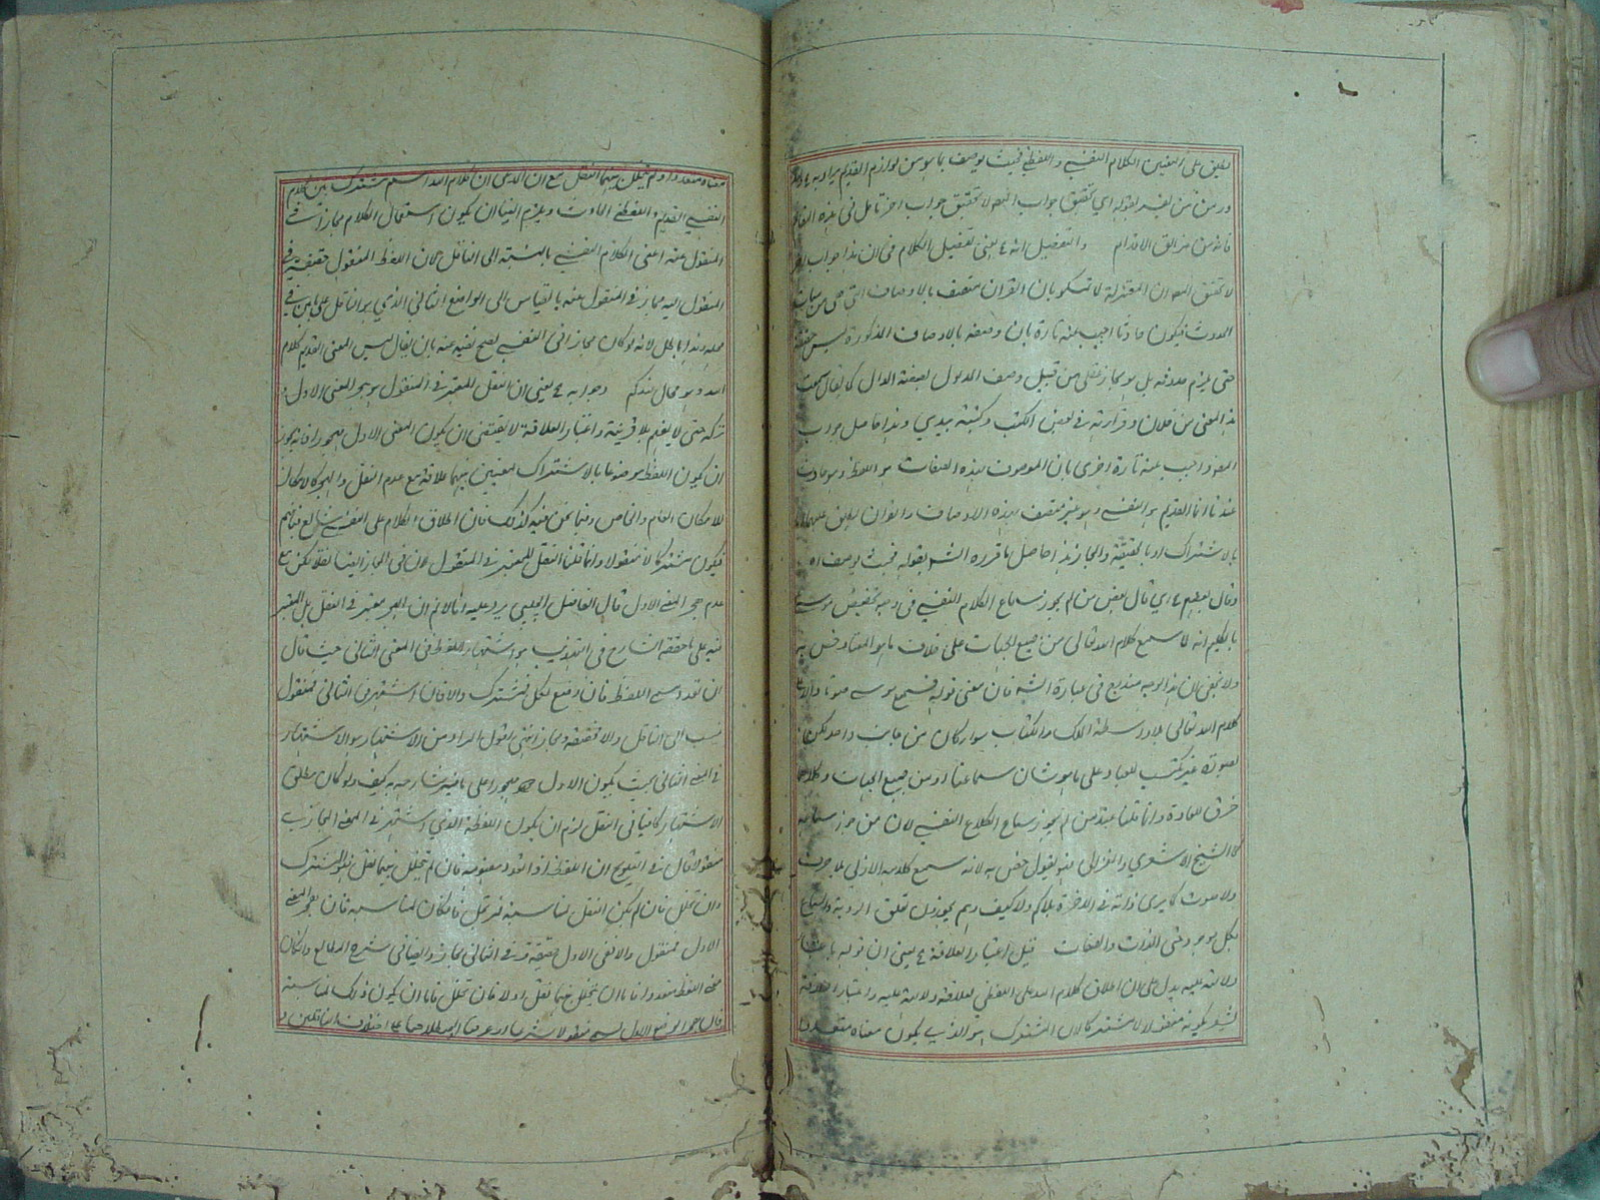 يطلق على المعنيين الكلام النفسي واللفظي فحيث يوصف بما هو من لوازم القديم يراد به
قوله اي تحقيق جواب المص لا تحقيق جواب اخر تأمل في هذه
فانه من مزالق الاقدام والتفصيل انه يعني تفصيل الكلام في ان هذا جواب
لا تحقيق المص ان المعتزلة لما تمسكوا بان القران متصف بالاوصاف التي هي من سمات
الحدوث فيكون حادثا اجيب عنه تارة بان وصفه بالاوصاف المذكورة ليس حقيقة
حتى يلزم حدوثه بل هو مجاز عقلي من قبيل وصف المدلول بصفة الدال كما يقال سمعت
هذا المعنى من فلان وقرأته في بعض الكتب وكتبته بيدي وهذا حاصل جواب
المص واجيب عنه تارة اخرى بان الموصوف بهذه الصفات هو اللفظ وهو حادث
عندنا انما القديم هو النفسي وهو غير متصف بهذه الاوصاف والقران يطلق عليهما
بالاشتراك او بالحقيقة والمجاز هذا حاصل ما قرره الشه بقوله فحيث يوصف اه
وقال بعضهم اي قال بعض من لم يجوز سماع الكلام النفسي في وجه تخصيص موسى
بالكليم انه لما سمع كلام الله تعالى من جميع الجهات على خلاف ما هو المعتاد خص به
ولا يخفى ان هذا الوجه مندرج في عبارة الشه فان معنى قوله فسمع موسى صوتا دالا على
كلام الله تعالى بلا واسطة الملك والكتاب سواء كان من جانب واحد لكن
بصوت غير مكتسب للعباد على ما هو شان سماعنا او من جميع الجهات وكلاهما
خرق للعادة وانما قلنا عند من لم يجوز سماع الكلام النفسي لان من جوز سماعه
كالشيخ الاشعري والغزالي فهو يقول خص به لانه سمع كلامه الازلي بلا حرف
ولا صوت كما يرى ذاته في الاخرة بلا كم ولا كيف وهم يجوزون تعلق الرؤية والسماع
بكل موجود حتى الذات والصفات قيل اعتبار العلاقة يعني ان قوله باعتبار
دلالته عليه يدل على ان اطلاق كلام الله على اللفظي لعلاقة دلالته عليه واعتبار العلاقة
يشعر بكونه منقولا لا مشتركا لان المشترك هو الذي يكون معناه متعددا
معناه متعددا ولم يتخلل بينهما النقل مع ان المدعى ان كلام الله اسم مشترك بين الكلام
النفسي القديم واللفظي الحادث ويلزم ايضا ان يكون استعمال الكلام مجازا في
المنقول عنه اعني الكلام النفسي بالنسبة الى الناقل لان اللفظ المنقول حقيقة في
المنقول اليه مجاز في المنقول عنه بالقياس الى الواضع الثاني الذي هو الناقل على ما بين في
محله وهذا باطل لانه لو كان مجازا في النفسي يصح نفيه عنه بان يقال ليس المعنى القديم كلام
الله وهو محال وجوابه يعني ان النقل المعتبر في المنقول هو هجر المعنى الاول
تركه حتى لا يفهم بلا قرينة واعتبار العلاقة لا يقتضي ان يكون المعنى الاول مهجورا فانه يجوز
ان يكون اللفظ موضوعا بالاشتراك لمعنيين بينهما علاقة مع عدم النقل والهجر كالامكان
للامكان العام والخاص وفيما نحن فيه كذلك فان اطلاق الكلام على النفسي شائع فيما بينهم
فيكون مشتركا لا منقولا وانما قلنا النقل المعتبر في المنقول لان في المجاز ايضا نقلا لكن مع
عدم هجر المعنى الاول قال الفاضل الچلبي يرد عليه انا لا نم ان الهجر معتبر في النقل بل المعتبر
فيه على ما حققه الشارح في التهذيب هو اشتهار اللفظ في المعنى الثاني حيث قال
ان تعدد مسمى اللفظ فان وضع لكل فمشترك والا فان اشتهر في الثاني فمنقول
ينسب الى الناقل والا فحقيقة ومجاز انتهى اقول المراد من الاشتهار هو الاشتهار
في المعنى الثاني بحيث يكون الاول مهجورا على ما فسر شارحه به كيف ولو كان مطلق
الاشتهار كافيا في النقل لزم ان يكون اللفظ الذي اشتهر في المعنى المجازي
منقولا قال في التلويح ان اللفظ اذا تعدد مفهومه فان لم يتخلل بينهما نقل فهو المشترك
وان تخلل فان لم يكن النقل لمناسبة فمرتجل فان كان لمناسبة فان هجر المعنى
الاول فمنقول والا ففي الاول حقيقة وفي الثاني مجاز وايضا في شرح المطالع وان كان
معنى اللفظ متعددا فاما ان يتخلل بينهما نقل او لا فان تخلل فاما ان يكون ذلك لمناسبة
فان هجر الوضع الاول يسمى منقولا شرعيا او عرفيا او اصطلاحيا على اختلاف الناقلين